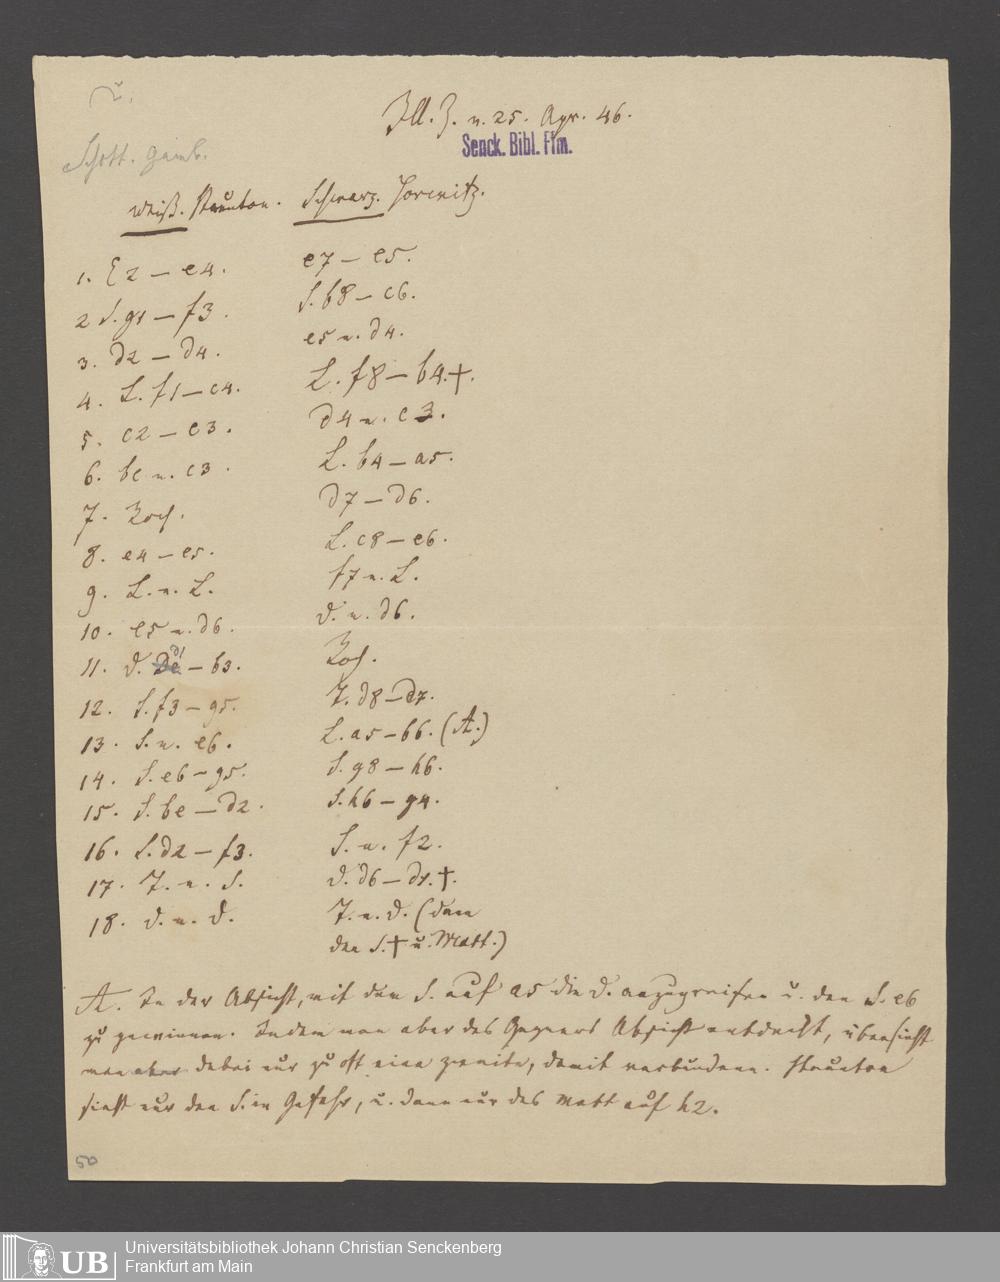 Ill. Z. v. 25. Apr. 46.
Senck. Bibl. Ffm.
Schott. Gamb.
Weiß. Staunton. Schwarz. Horwitz.
1. E2 – e4. e7 – e5.
2 S. g1 – f3. S. b8 – c6.
3. d2 – d4. e5 n. d4.
4. L. f1 – c4. L. f8 – b4.†.
5. c2 – c3. d4 n. c3.
6. be n. c3. L. b4 – a5.
7. Roch. d7 – d6.
8. e4 – e5. L. c8 – e6.
9. L. n. L. f7 n. L.
10. e5 n. d6. D. n. d6.
11. D. d1 – b3. Roch.
12. S. f3 – g5. T. d8 – d7.
13. S. n. e6. L. a5 – b6. (A.)
14. S. e6 – g5. S. g8 – h6.
15. S. be – d2. S. h6 – g4.
16. S. d2 – f3. S. n. f2.
17. T. n. S. D. d6 – d1.†.
18. D. n. D. T. n. D. (dann
den S.† u. Matt.)
A. In der Absicht, mit dem S. auf a5 die D. anzugreifen u. den S. e6
zu gewinnen. Indem man aber des Gegners Absicht entdeckt, übersieht
man aber dabei nur zu oft eine zweite, damit verbundene. Staunton
sieht nur den S. in Gefahr, u. dann nur das Matt auf h2.
50
UB
Universitätsbibliothek Johann Christian Senckenberg
Frankfurt am Main